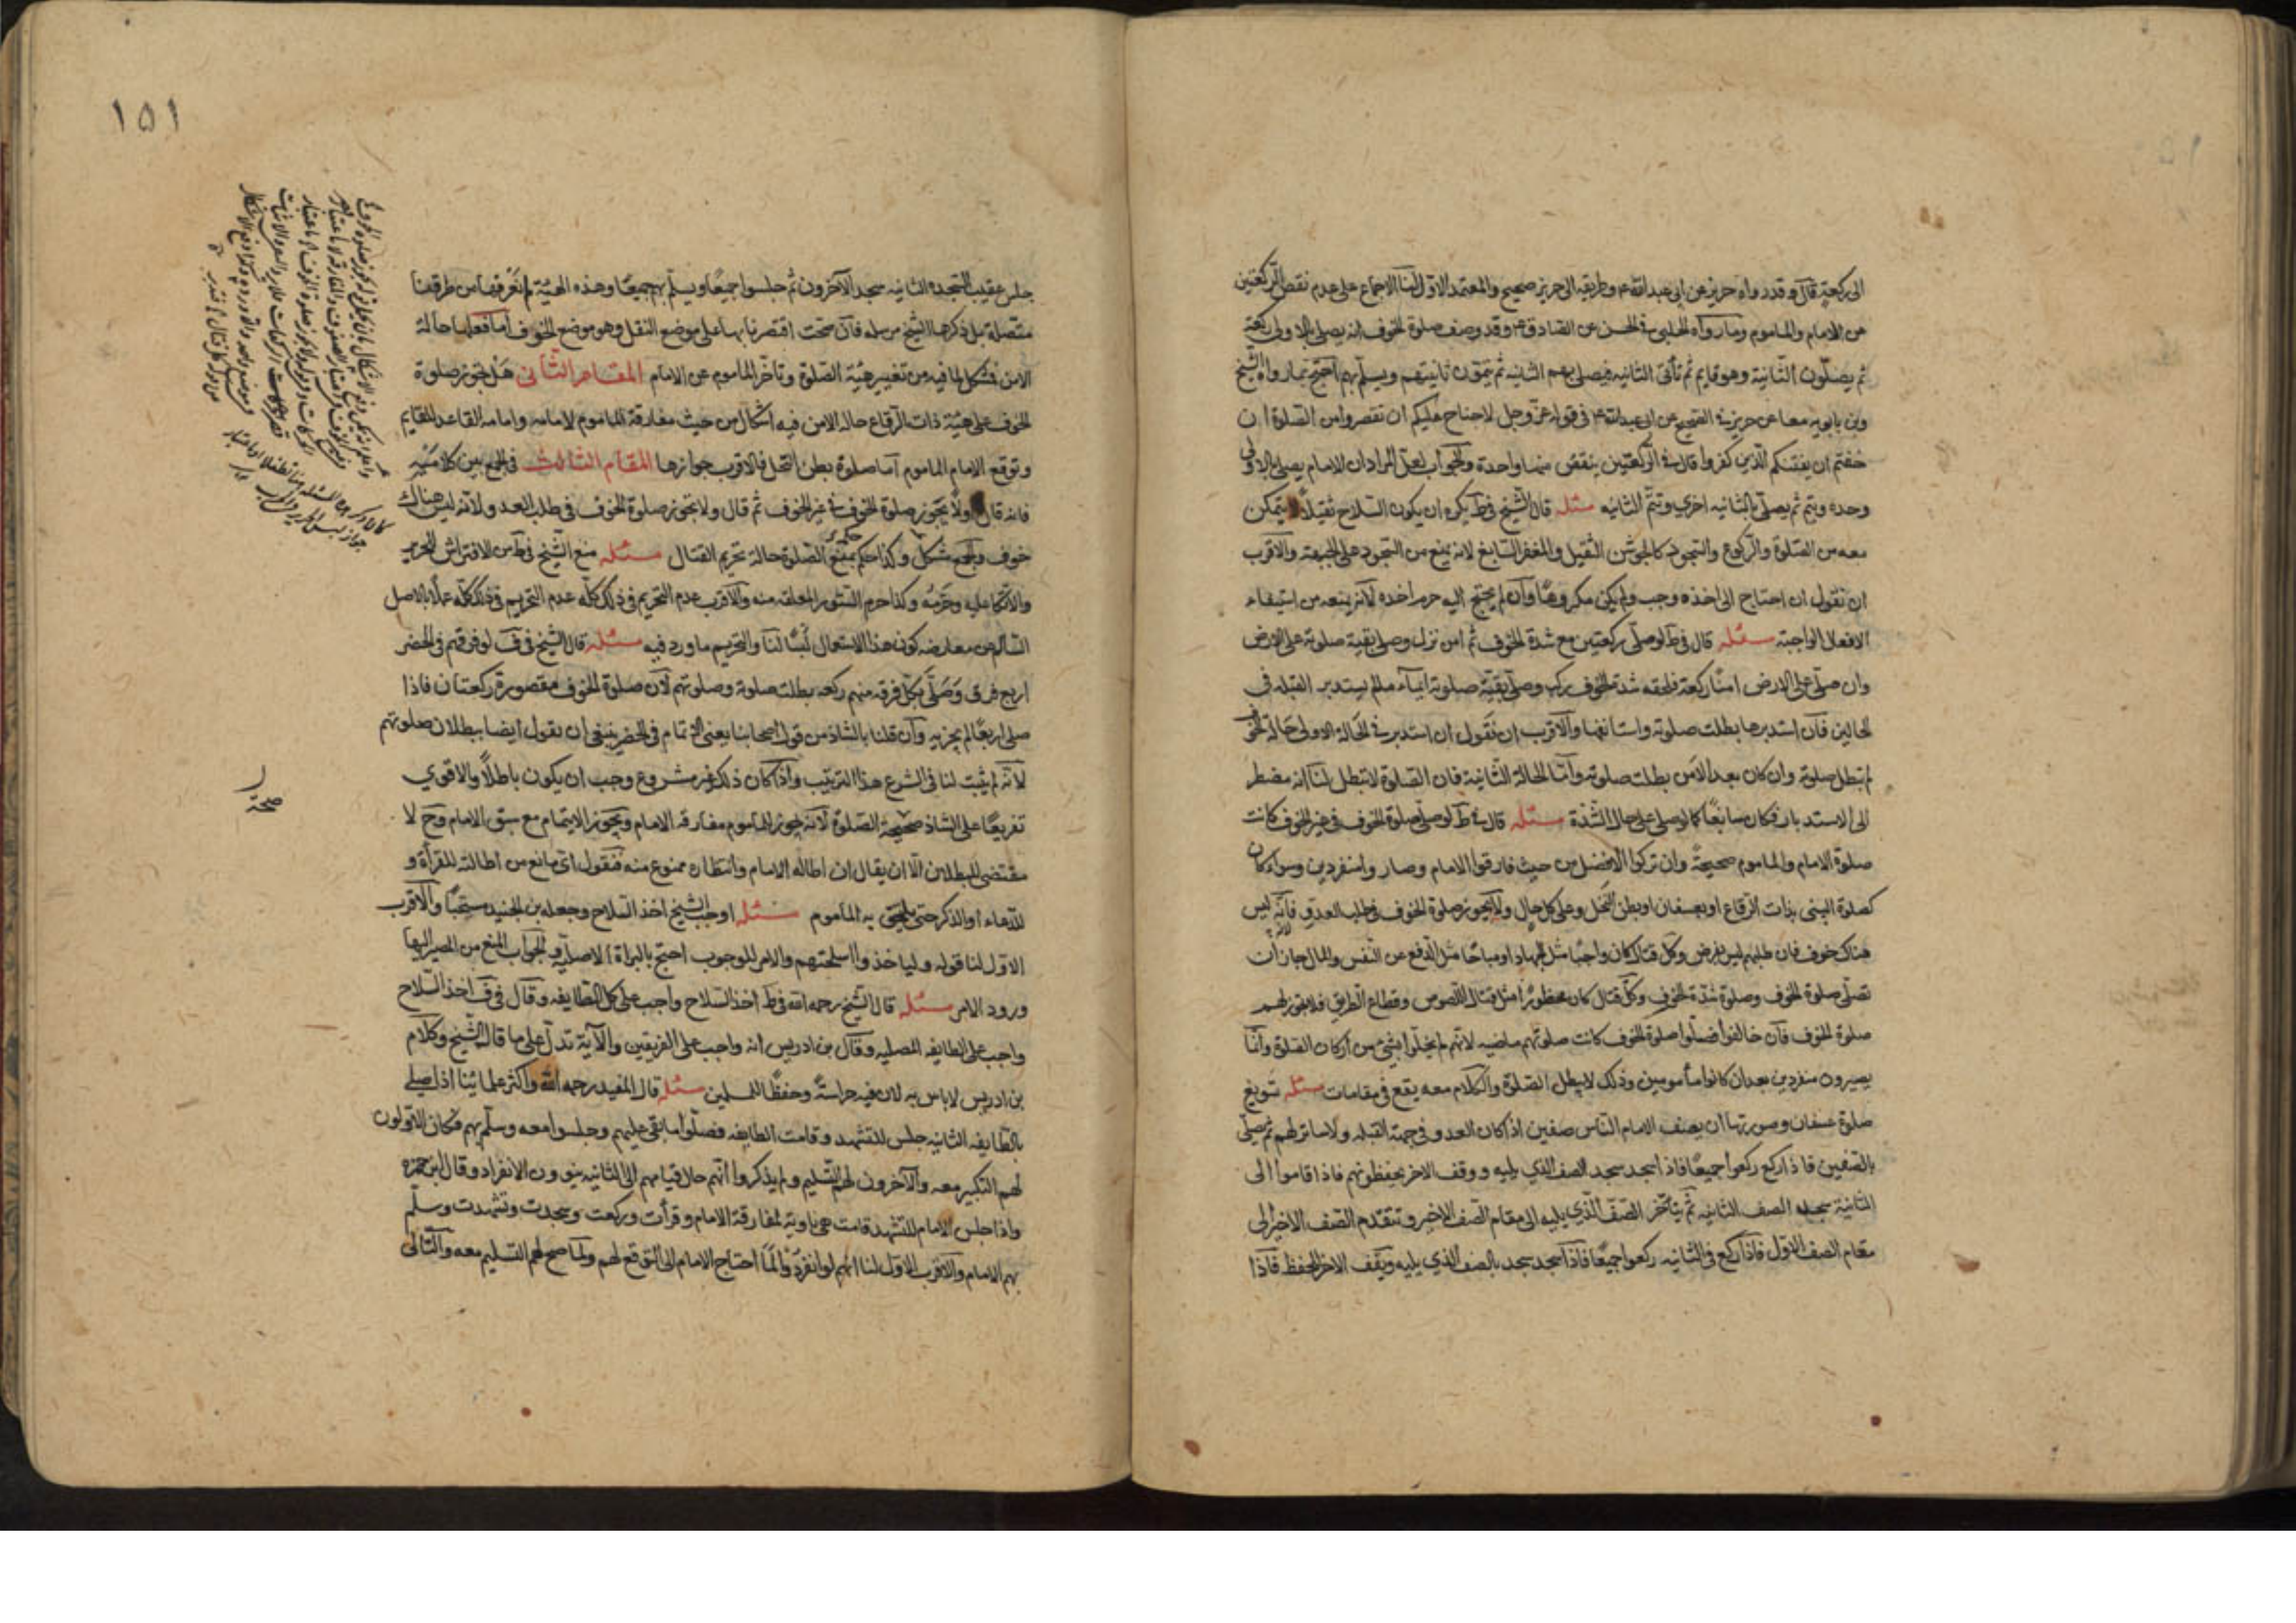 الى ركعة قال وقد رواه حريز عن ابى عبد الله ع وطريقه الى حريز صحيح والمعتمد الاول لنا الاجماع على عدم نقص الركعتين
عن الامام والماموم وما رواه الحلبى فى الحسن عن الصادق ع وقد وصف صلوة الخوف انه يصلى بالاولى ركعة
ثم يصلون الثانية وهو قايم ثم تأتى الثانيه فيصلى بهم الثانيه ثم يتمون ثانيتهم ويسلم بهم احتج بما رواه الشيخ
وبن بابويه معا عن حريز فى الصحيح عن ابى عبد الله ع فى قوله عز وجل لا جناح عليكم ان تقصروا من الصلوة ان
خفتم ان يفتنكم الذين كفروا قال فى الركعتين ينقص منهما واحدة والجواب لعل المراد ان الامام يصلى بالاولى
وحده ويتم ثم يصلى بالثانيه اخرى وتتم الثانيه مسئله قال الشيخ فى ط يكره ان يكون السلاح ثقيلا لا يتمكن
معه من الصلوة والركوع والسجود كالجوشن الثقيل والمغفر السابغ لانه يمنع من السجود على الجبهة والاقرب
ان نقول ان احتاج الى اخذه وجب ولم يكن مكروها وان لم يحتج اليه حرم اخذه لانه يمنعه من استيفاء
الافعال الواجبة مسئله قال فى ط لو صلى ركعتين مع شدة الخوف ثم امن نزل وصلى بقية صلوته على الارض
وان صلى على الارض امنا ركعة فلحقه شدة الخوف ركب وصلى بقية صلوته ايماء ما لم يستدبر القبله فى
الحالين فان استدبرها بطلت صلوته واستانفها والاقرب ان نقول ان استدبر فى الحالة الاولى حالة الخوف
لم تبطل صلوته وان كان بعد الامن بطلت صلوته واما الحالة الثانية فان الصلوة لا تبطل لنا انه مضطر
الى الاستدبار فكان سايغا كما لو صلى على حال الشدة مسئله قال فى ط لو صلى صلوة الخوف فى غير الخوف كانت
صلوة الامام والماموم صحيحة وان تركوا الافضل من حيث فارقوا الامام وصاروا منفردين وسواء كان
كصلوة النبى بذات الرقاع او بعسفان او بطن النخل وعلى كل حال ولا يجوز صلوة الخوف فى طلب العدو فانه ليس
هناك خوف فان طلبهم ليس بفرض وكل قتال كان واجبا مثل الجهاد او مباحا مثل الدفع عن النفس والمال جاز ان
تصلى صلوة الخوف وصلوة شدة الخوف وكل قتال كان محظورا مثل قتال اللصوص وقطاع الطريق فلا يجوز لهم
صلوة الخوف فان خالفوا وصلوا صلوة الخوف كانت صلوتهم ماضيه لانهم لم يخلوا بشىء من اركان الصلوة وانما
يصيرون منفردين بعد ان كانوا مأمومين وذلك لا يبطل الصلوة والكلام معه يقع فى مقامات مسئله تسويغ
صلوة عسفان وصورتها ان يصف الامام الناس صفين اذا كان العدو فى جهة القبله ولا ساتر لهم ثم يصلى
بالصفين فاذا ركع ركعوا جميعا فاذا سجد سجد الصف الذى يليه ووقف الاخر يحفظونهم فاذا قاموا الى
الثانية سجد الصف الثانى ثم يتأخر الصف الذى يليه الى مقام الصف الاخير وتتقدم الصف الاخير الى
مقام الصف الاول فاذا ركع فى الثانيه ركعوا جميعا فاذا سجد سجد بالصف الذى يليه ويقف الاخر للحفظ فاذا
١٥١
جلس عقيب السجده الثانيه سجد الآخرون ثم جلسوا جميعا ويسلم بهم جميعا وهذه الهيئة لم نعرفها من طرقنا
متصلة بل ذكرها الشيخ مرسله فان صحت اقتصرنا بها على موضع النقل وهو موضع الخوف اما فعلها حالة
الامن فمشكل لما فيه من تغيير هيئة الصلوة وتاخر الماموم عن الامام المقام الثانى هل تجوز صلوة
الخوف على هيئة ذات الرقاع حالة الامن فيه اشكال من حيث مفارقة الماموم لامامه وامامه القاعد للقايم
وتوقع الامام الماموم اما صلوة بطن النخل فالاقرب جوازها المقام الثالث فى الجمع بين كلاميه
فانه قال اولا يجوز صلوة الخوف فى غير الخوف ثم قال ولا يجوز صلوة الخوف فى طلب العدو لانه ليس هناك
خوف والجمع مشكل وكذا حكمه بمنع الصلوة حالة تحريم القتال مسئله منع الشيخ فى ط من الافتراش الحرير
والاتكا عليه وحرمه وكذا حرم الستور المعلقه منه والاقرب عدم التحريم فى ذلك كله عدم التحريم فى ذلك كله عملا بالاصل
السالم عن معارضه كون هذا الاستعمال لبسا لنا والتحريم ما ورد فيه مسئله قال الشيخ فى ف لو فرقهم فى الحضر
اربع فرق وصلى بكل فرقه منهم ركعه بطلت صلوته وصلوتهم لان صلوة الخوف مقصورة ركعتان فاذا
صلى اربعا لم يجزيه وان قلنا بالشاذ من قول اصحابنا يعنى الاتمام فى الحضر ينبغى ان نقول ايضا ببطلان صلوتهم
لانه لم يثبت لنا فى الشرع هذا الترتيب واذا كان ذلك غير مشروع وجب ان يكون باطلا والاقوى
تفريعا على الشاذ صحيحة الصلوة لانه يجوز للماموم مفارقه الامام ويجوز الايتمام مع سبق الامام وح لا
مقتضى للبطلان الا ان يقال ان اطاله الامام وانتظاره ممنوع منه فنقول اى مانع من اطالته للقرأة و
للدعاء او الذكر حتى يلحق به الماموم مسئله اوجب الشيخ اخذ السلاح وجعله بن الجنيد مستحبا والاقرب
الاول لنا قوله ولياخذوا اسلحتهم والامر للوجوب احتج بالبراة الاصلية والجواب المنع من المصير اليها
ورود الامر مسئله قال الشيخ رحمه الله فى ط اخذ السلاح واجب على كل الطايفه وقال فى ف اخذ السلاح
واجب على الطايفه المصليه وقال بن ادريس انه واجب على الفريقين والآية تدل على ما قال الشيخ وكلام
بن ادريس لا باس به لان فيه حراسة وحفظا للمسلمين مسئله قال المفيد رحمه الله واكثر علمائنا اذا صلى
بالطايفه الثانيه جلس للتشهد وقامت الطايفه فصلوا ما بقى عليهم وجلسوا معه وسلم بهم فكان الاولون
لهم التكبير معه والآخرون لهم التسليم ولم يذكروا انهم حال قيامهم الى الثانيه ينوون الانفراد وقال ابن حمزه
واذا جلس الامام للتشهد قامت هى ناوية لمفارقة الامام وقرأت وركعت وسجدت وتشهدت وسلم
بهم الامام والاقرب الاول لنا انهم لو انفردوا لما احتاج الامام الى التوقع لهم ولما صح لهم التسليم معه والتالى
صحة